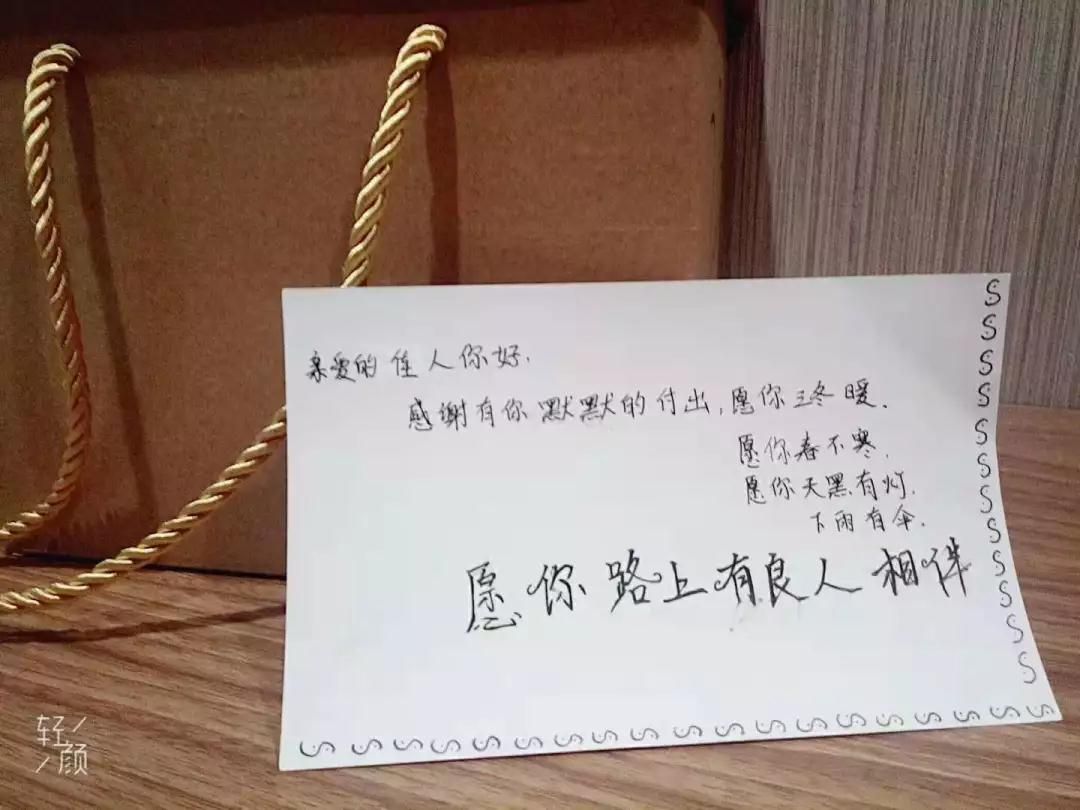 亲爱的佳人你好.
感谢有你默默的付出,愿你三冬暖.
愿你春不寒.
愿你天黑有灯.
下雨有伞.
愿你路上有良人相伴
轻颜